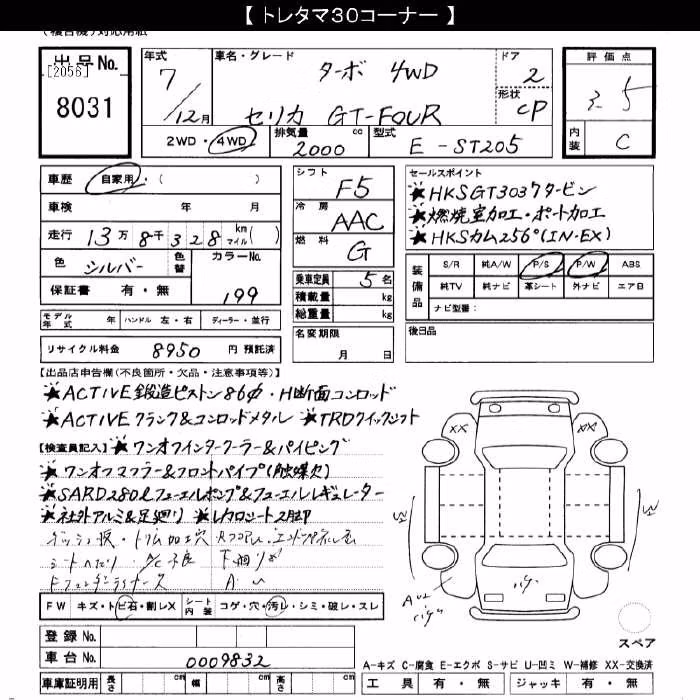 【 トレタマ30コーナー 】
(複合機)対応用紙
出品No.
[2056]
8031
年式
7
/12月
車名・グレード
ターボ 4WD
セリカ GT-FOUR
ドア
2
形状
CP
評価点
3.5
内装
C
2WD・4WD
排気量
2000 cc
型式
E-ST205
車歴 自家用・( )
車検 年 月
走行 13万8千328 km マイル( )
色 シルバー
色替
カラーNo.
199
保証書 有・無
モデル年式 年 ハンドル 左・右 ディーラー・並行
リサイクル料金 8950 円 預託済
シフト
F5
冷房
AAC
燃料
G
乗車定員 5名
積載量 kg
総重量 kg
名変期限
月 日
セールスポイント
★HKSGT3037タービン
★燃焼室加工・ポート加工
★HKSカム256°(IN-EX)
装備品
S/R 純A/W P/S P/W ABS
純TV 純ナビ 革シート 外ナビ エアB
ナビ型番:
後日品
【出品店申告欄(不良箇所・欠品・注意事項等)】
★ACTIVE鍛造ピストン86φ・H断面コンロッド
★ACTIVEクランク&コンロッドメタル ★TRDクイックシフト
【検査員記入】★ワンオフインタークーラー&パイピング
★ワンオフマフラー&フロントパイプ(触媒欠)
★SARD280ℓフューエルポンプ&フューエルレギュレーター
★社外アルミ&足廻り ★レカロシート2脚
トリム加工穴
シートヘたり A/C不良
FW キズ・トビ石・割レX シート内装 コゲ・穴・汚レ・シミ・破レ・スレ
登録No.
車台No. 0009832
車庫証明用 長さ cm 幅 cm 高さ cm
XX
XX
スペア
A-キズ C-腐食 E-エクボ S-サビ U-凹ミ W-補修 XX-交換済
工具 有・無 ジャッキ 有・無